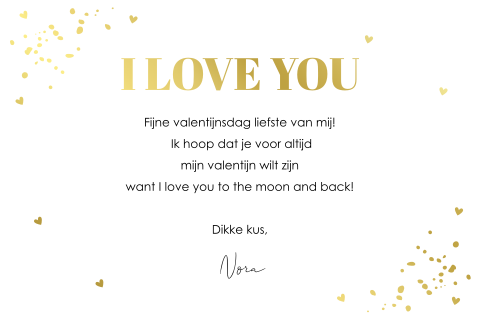 I LOVE YOU
Fijne valentijnsdag liefste van mij!
Ik hoop dat je voor altijd
mijn valentijn wilt zijn
want I love you to the moon and back!
Dikke kus,
Nora